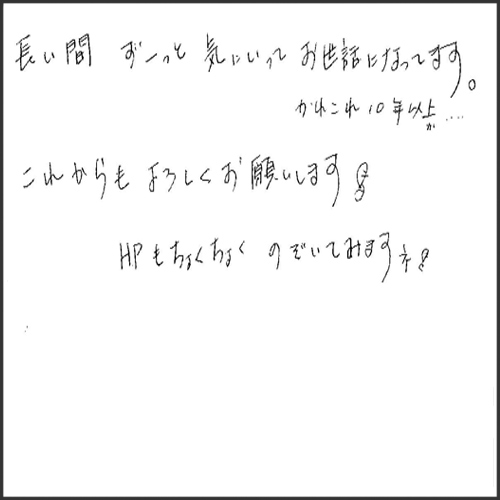 長い間 ずーっと 気にいって お世話になってます。
かれこれ10年以上か....
これからも よろしくお願いします!!
HPもちょくちょく のぞいてみますネ!!